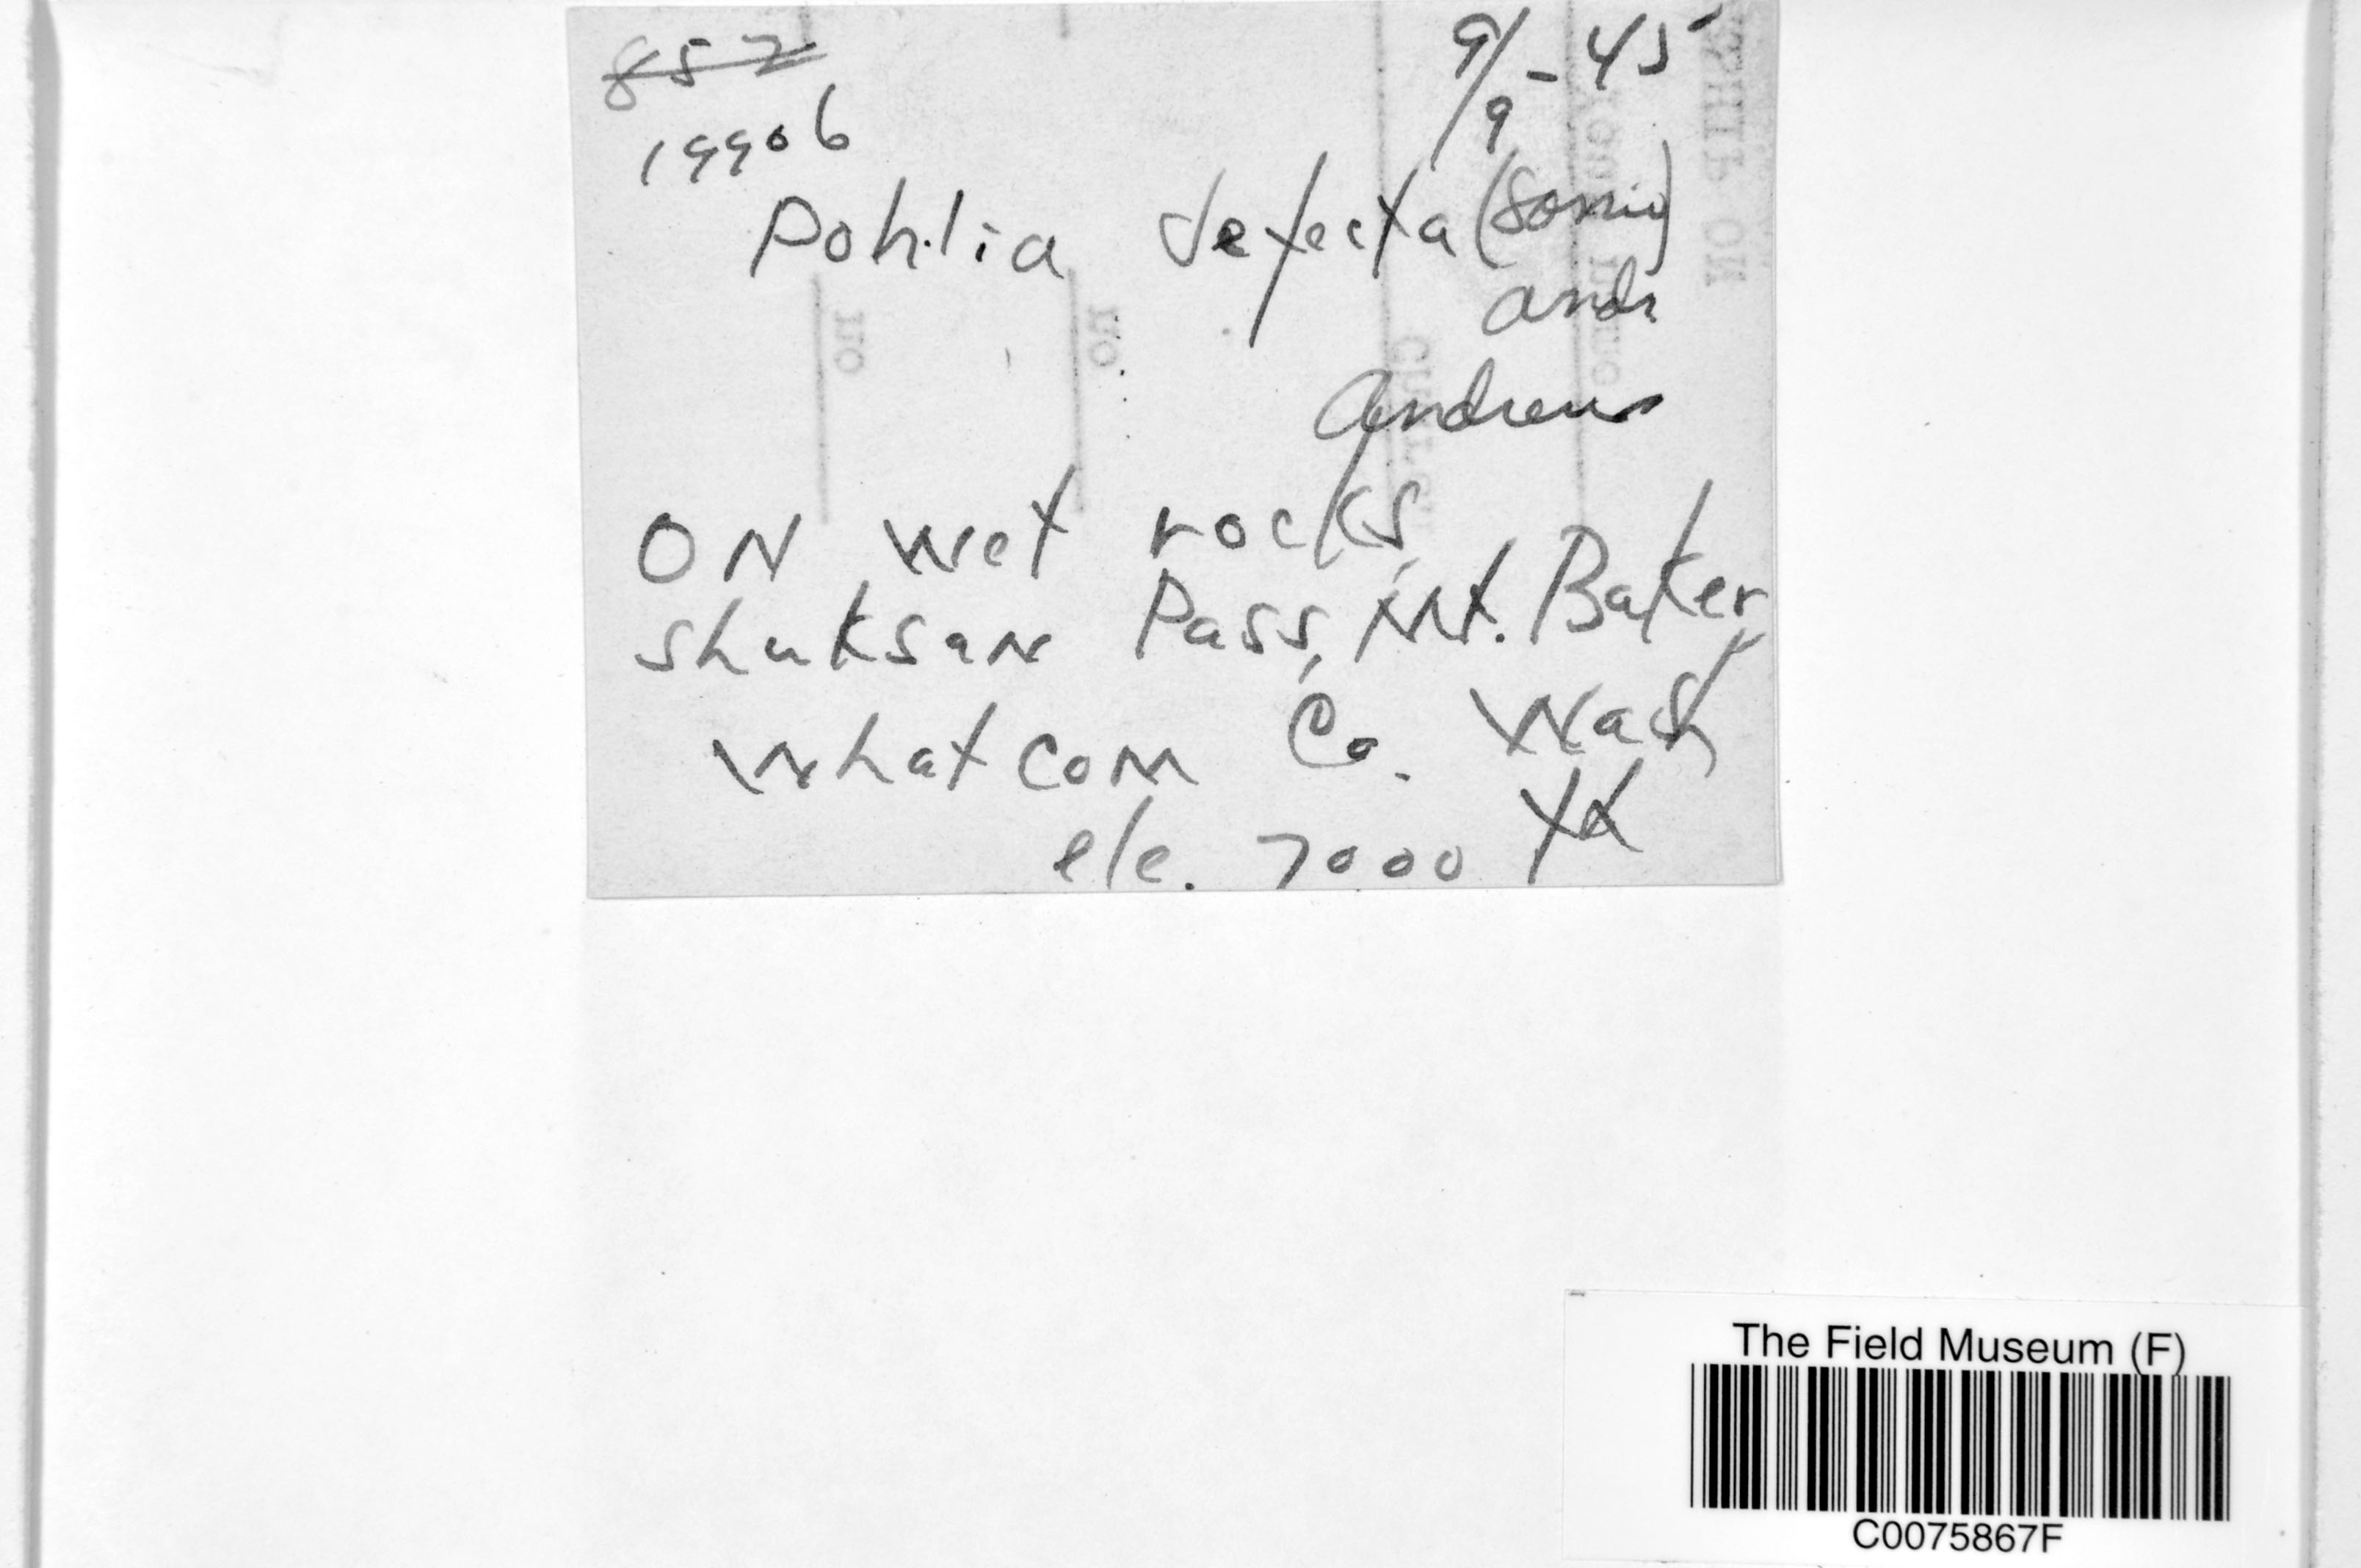 852
9/9-45
19906
Pohlia defecta (Sanio)
Andr
Andrews
ON wet rocks,
Shuksan Pass, Mt. Baker,
Whatcom Co. Wash
ele. 7000 ft
The Field Museum (F)
C0075867F